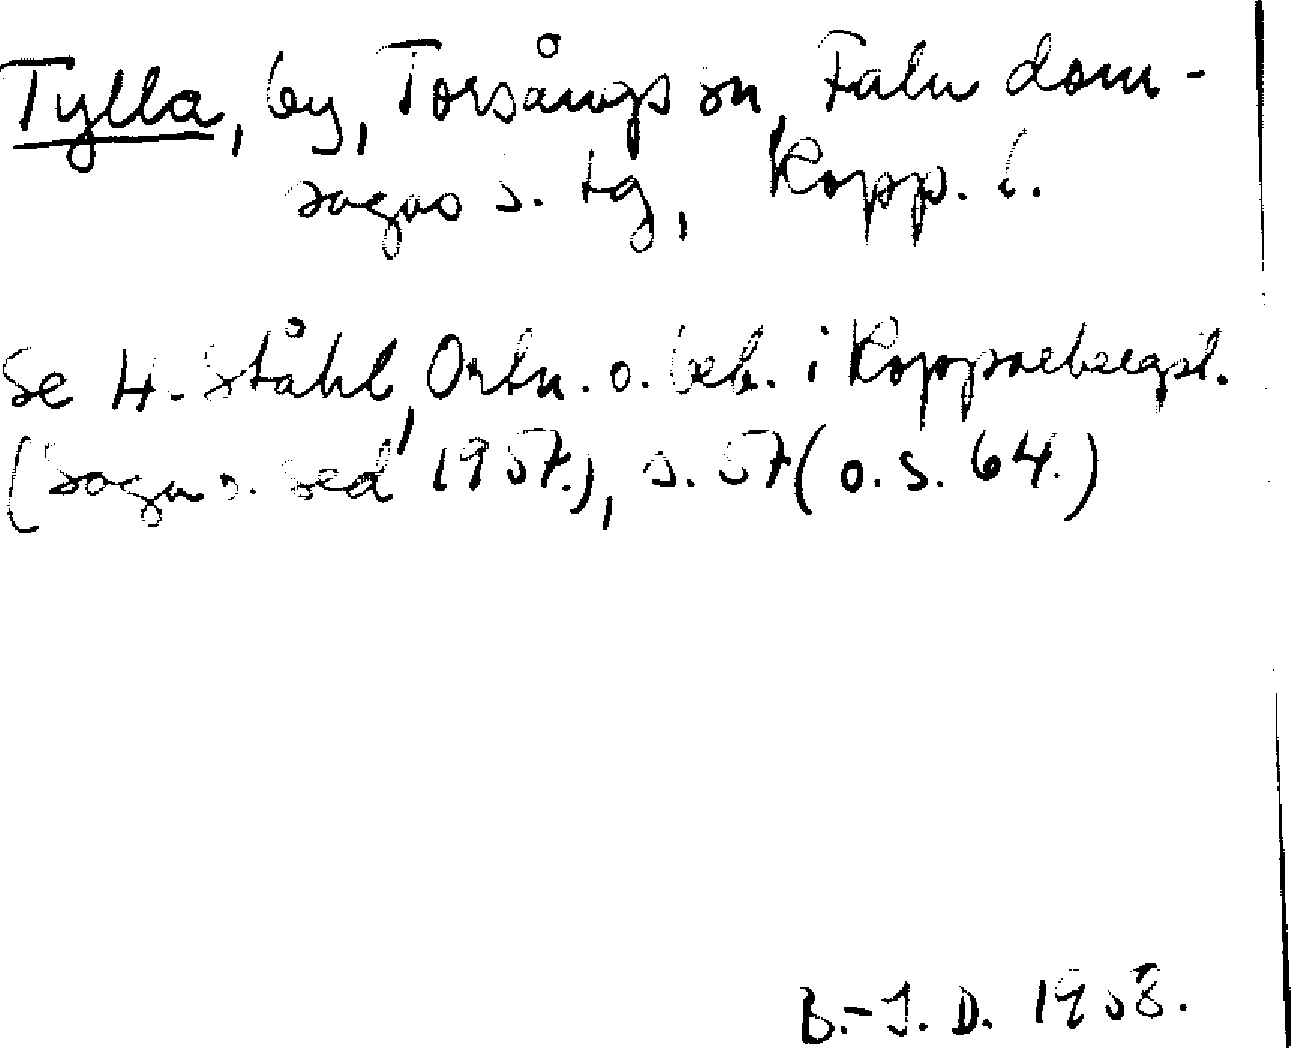 Tylla, by, Torsångs sn, Falu dom-
sagas s. tg, Kopp. l.
Se H. Ståhl, Ortn. o. beb. i Kopparbergsl.
(Saga o. sed 1957.), s. 57 (o. s. 64.)
B.-I. D. 1958.